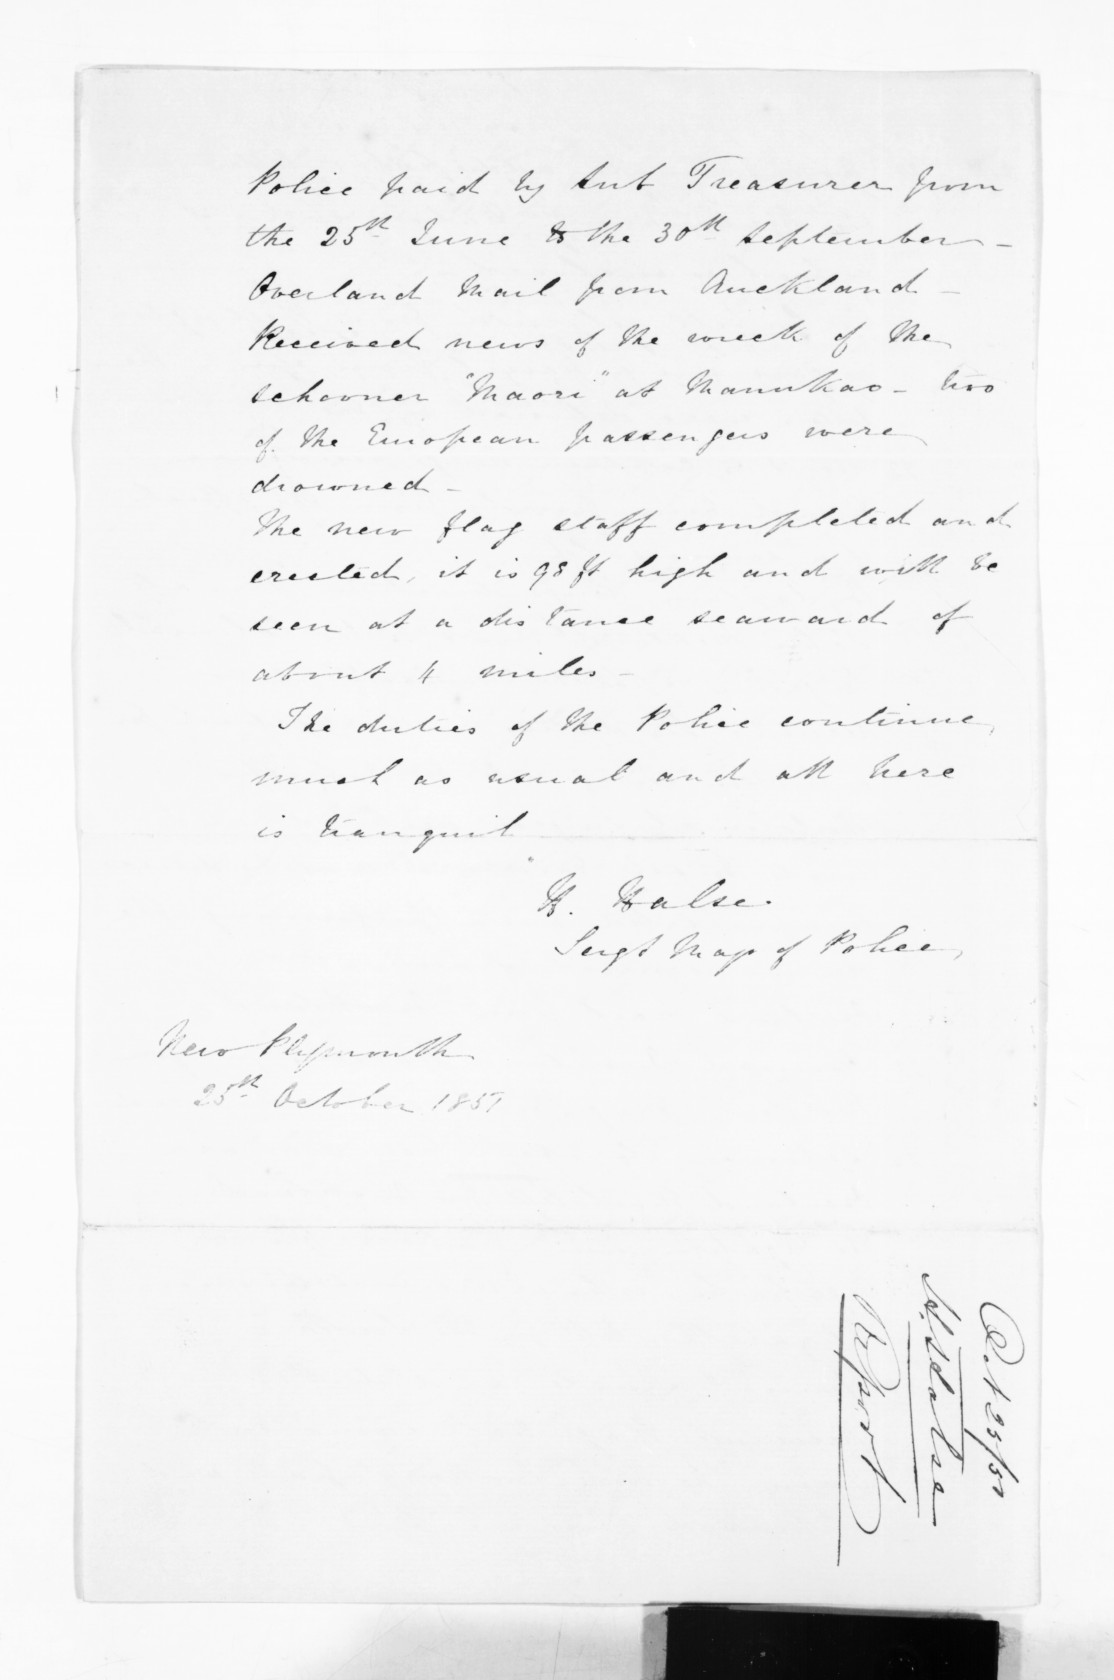 Police paid by Sub Treasurer from
the 25th June to the 30th September -
Overland Mail from Auckland -
Received news of the wreck of the
schooner "Maori" at Manukao - two
of the European passengers were
drowned -
The new flag staff completed and
erected, it is 98 ft high and will be
seen at a distance seaward of
about 11 miles -
The duties of the Police continue
much as usual and all here
is tranquil
H. Halse.
Sergt Major of Police,
New Plymouth
25th October 1851
Oct 25/51
H. Halse
Report